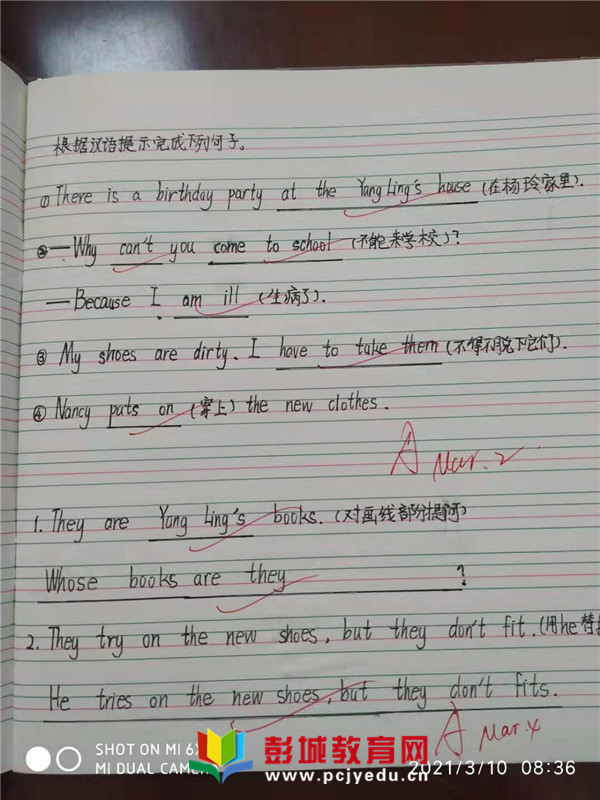 根据汉语提示完成下列句子。
① There is a birthday party at the Yang Ling's house (在杨玲家里).
② —Why can't you come to school (不能来学校)?
—Because I am ill (生病了).
③ My shoes are dirty. I have to take them (不得不脱下它们).
④ Nancy puts on (穿上) the new clothes.
A Mar.2
1. They are Yang Ling's books. (对画线部分提问)
Whose books are they ?
2. They try on the new shoes, but they don't fit. (用he替
He tries on the new shoes, but they don't fits.
A Mar.4
SHOT ON MI 6X
MI DUAL CAMERA
彭城教育网
www.pcjyedu.cn
2021/3/10 08:36